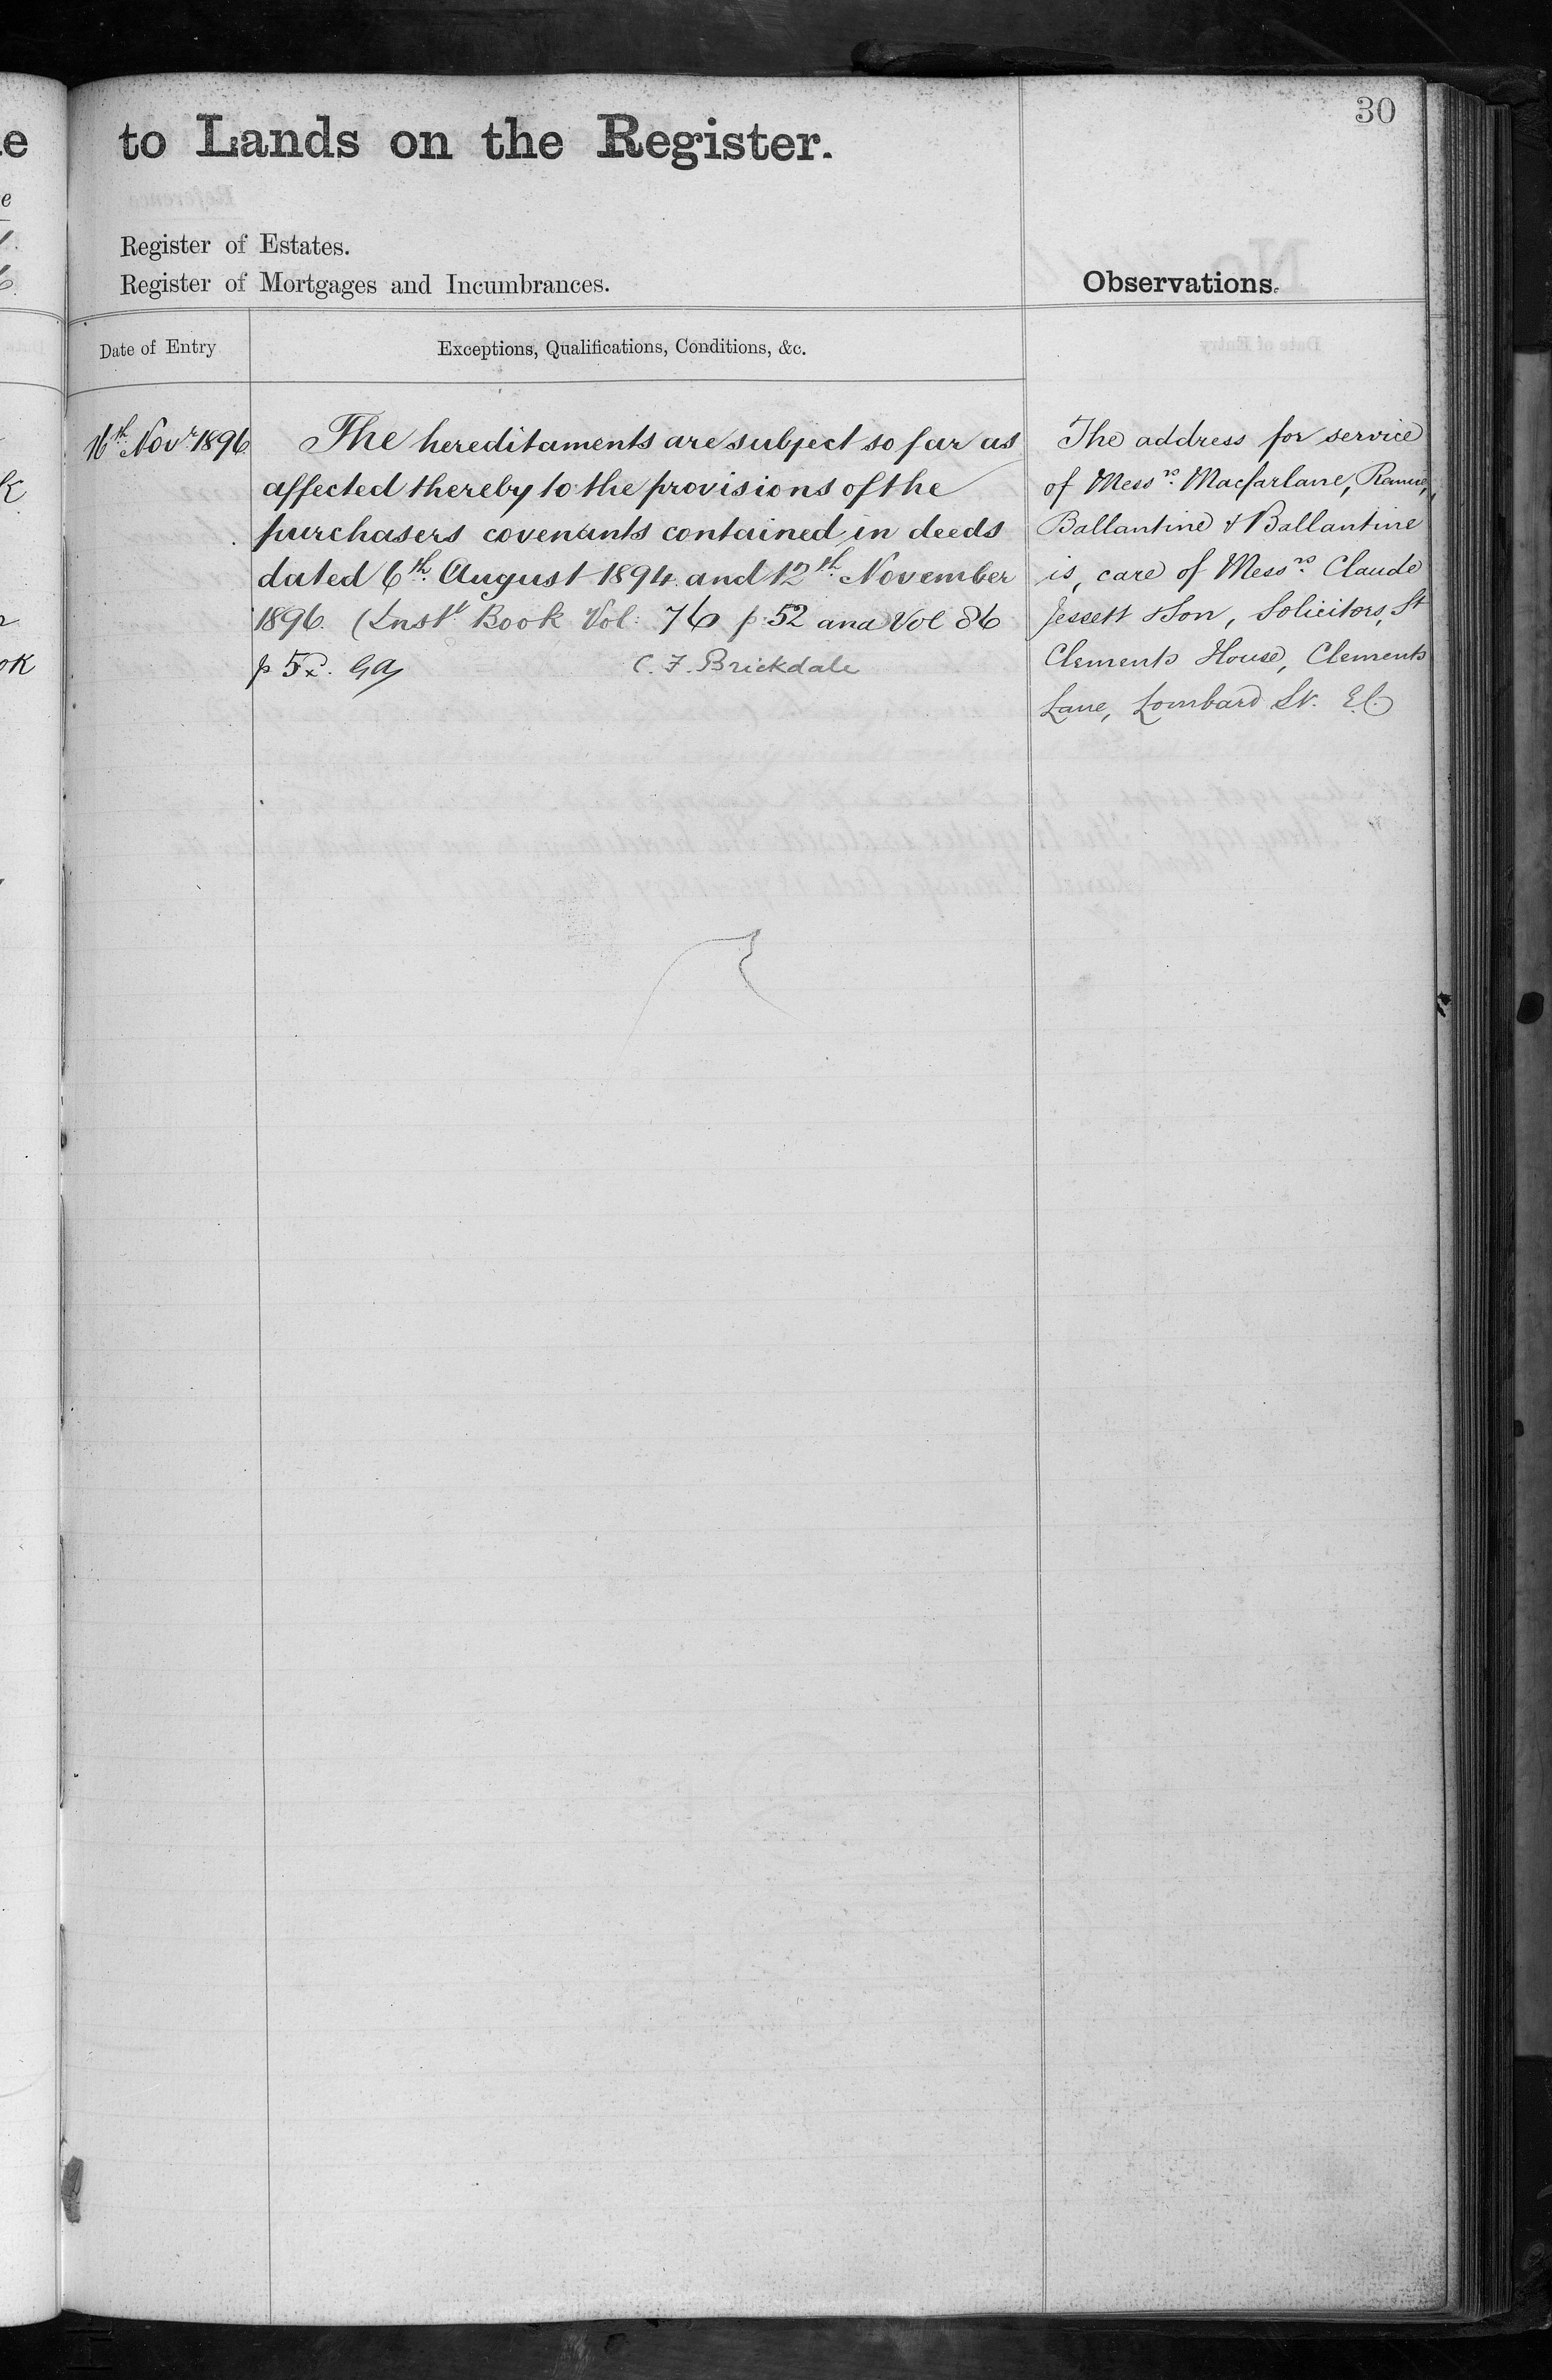 30
to Lands on the Register.
Register of Estates.
Register of Mortgages and Incumbrances.
Observations.
Date of Entry
Exceptions, Qualifications, Conditions, &c.
16th Novr 1896
The hereditaments are subject so far as
affected thereby to the provisions of the
purchasers covenants contained in deeds
dated 6th August 1894 and 12th November
1896. (Inst Book Vol: 76 p: 52 and Vol 86
p 5
C. F. Brickdale
The address for service
of Messrs. Macfarlane,
Ballantine & Ballantine
is, care of Messrs. Claude
Jessett & Son, Solicitors, St
Clements House, Clements
Lane, Lombard St. E.C.